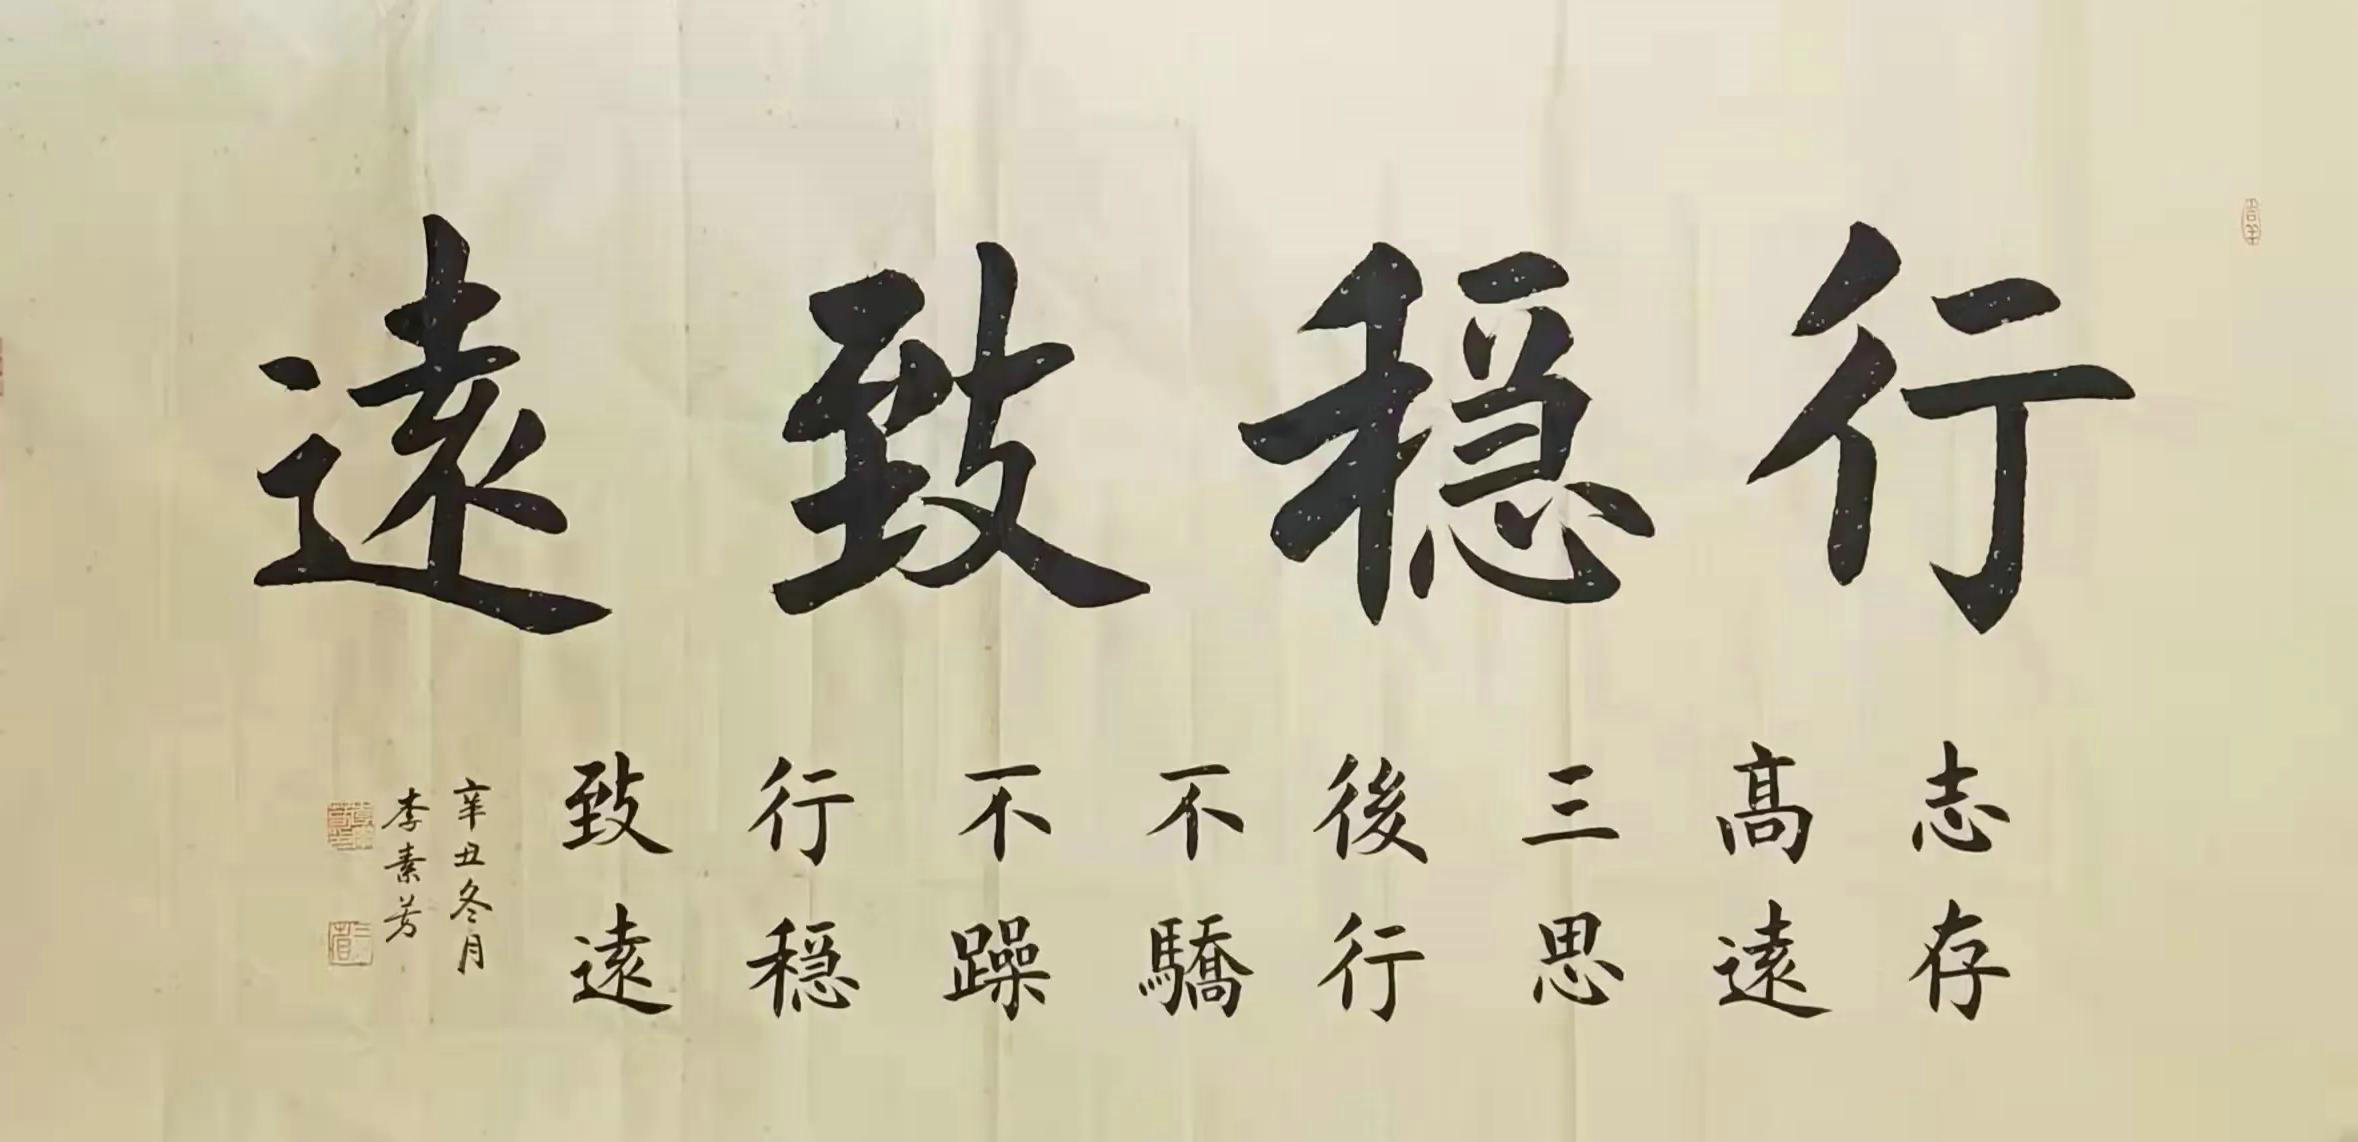 行穏致遠
志存
高遠
三思
後行
不驕
不躁
行穏
致遠
辛丑冬月
李素芳